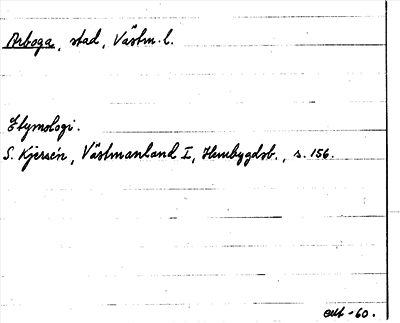 Arboga, stad, Västm. l.
Etymologi.
S. Kjersén, Västmanland I, Hembygdsb., s. 156.
okt -60.